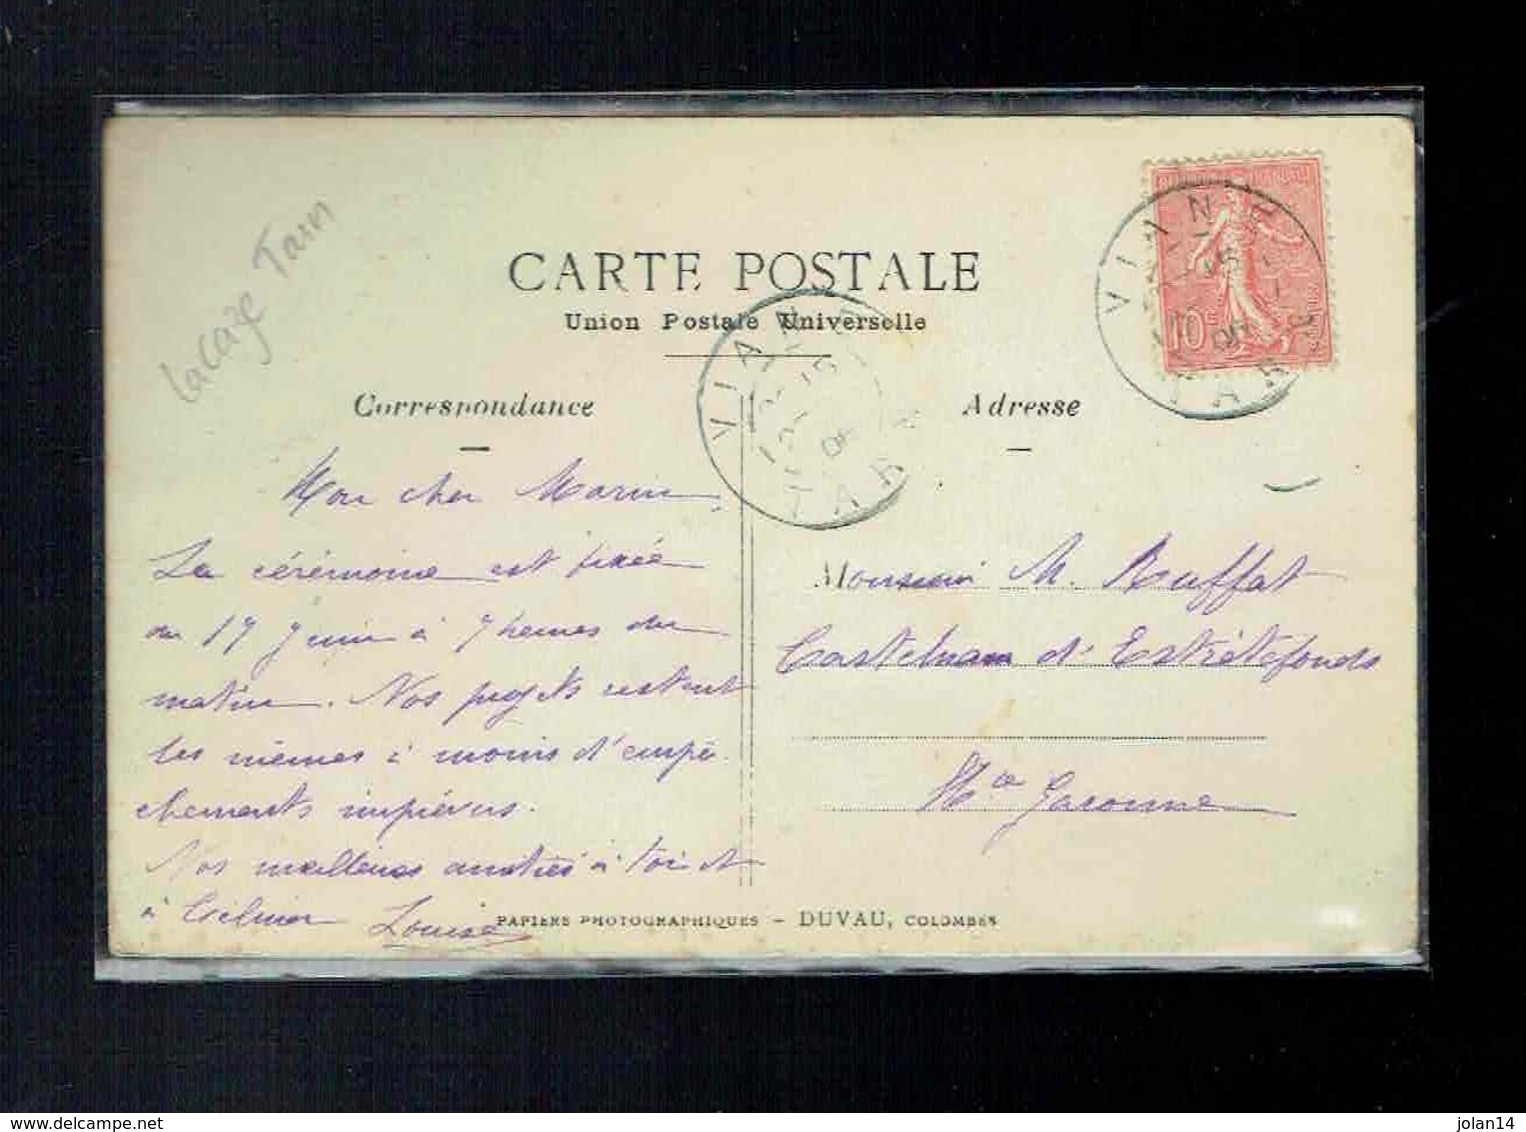 Lacaze Tarn
CARTE POSTALE
Union Postale Universelle
Correspondance
Adresse
VIANE
TARN
VIANE
TARN
10
Mon cher Marin,
La cérémonie est fixée
au 17 Juin à 7 heures du
matin. Nos projets restent
les mêmes à moins d'empê-
chements imprévus.
Nos meilleures amitiés à toi et
à
Louise
Monsieur M. Ruffat
Castelnau d'Estrétefonds
Hte Garonne
PAPIERS PHOTOGRAPHIQUES – DUVAU, COLOMBES
www.delcampe.net
jolan14